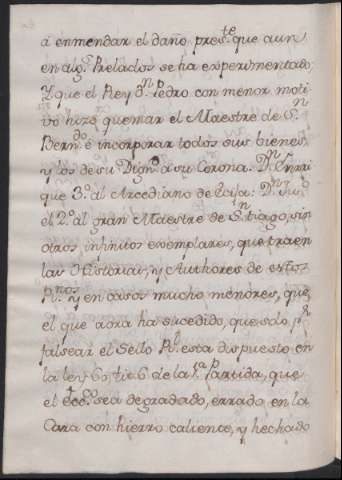 á enmendar el daño pres.te que aun
en alg.s Prelados se ha experimentado;
Y que el Rey d.n Pedro con menor moti
vo hizo quemar el Maestre de S.n
Bern.do é incorporar todos sus bienes,
y los de su Dign.d á su Corona: D.n Enrri
que 3.o al Arcediano de Ecija: D.n Ju.o
el 2.o al gran Maestre de S.ntiago, sin
otros infinitos exemplares, que traen
las Historias, y Authores de estos
R.nos y en casos mucho menores, que
el que aora ha sucedido, que solo p.r
falsear el Sello R.l esta dispuesto en
la ley 60, tit. 6 de la 1.a Partida, que
el ecc.co sea degradado, errado en la
Cara con hierro caliente, y hechado